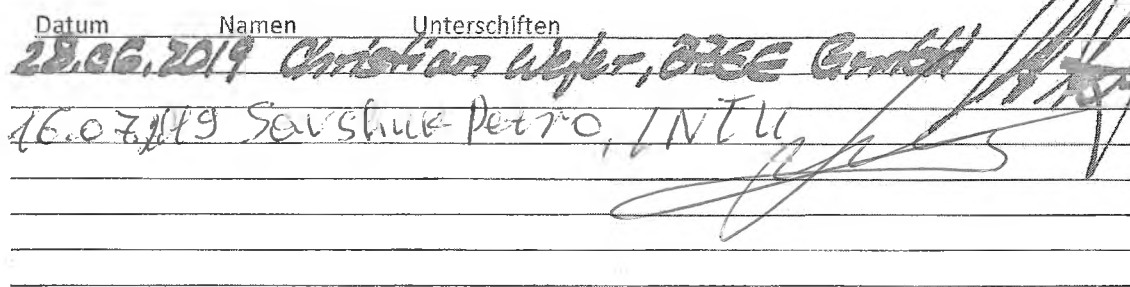 Datum Namen Unterschiften
28.06.2019 Christian Wefer, GmbH
16.07.2019 Savshuk Petro, INTU